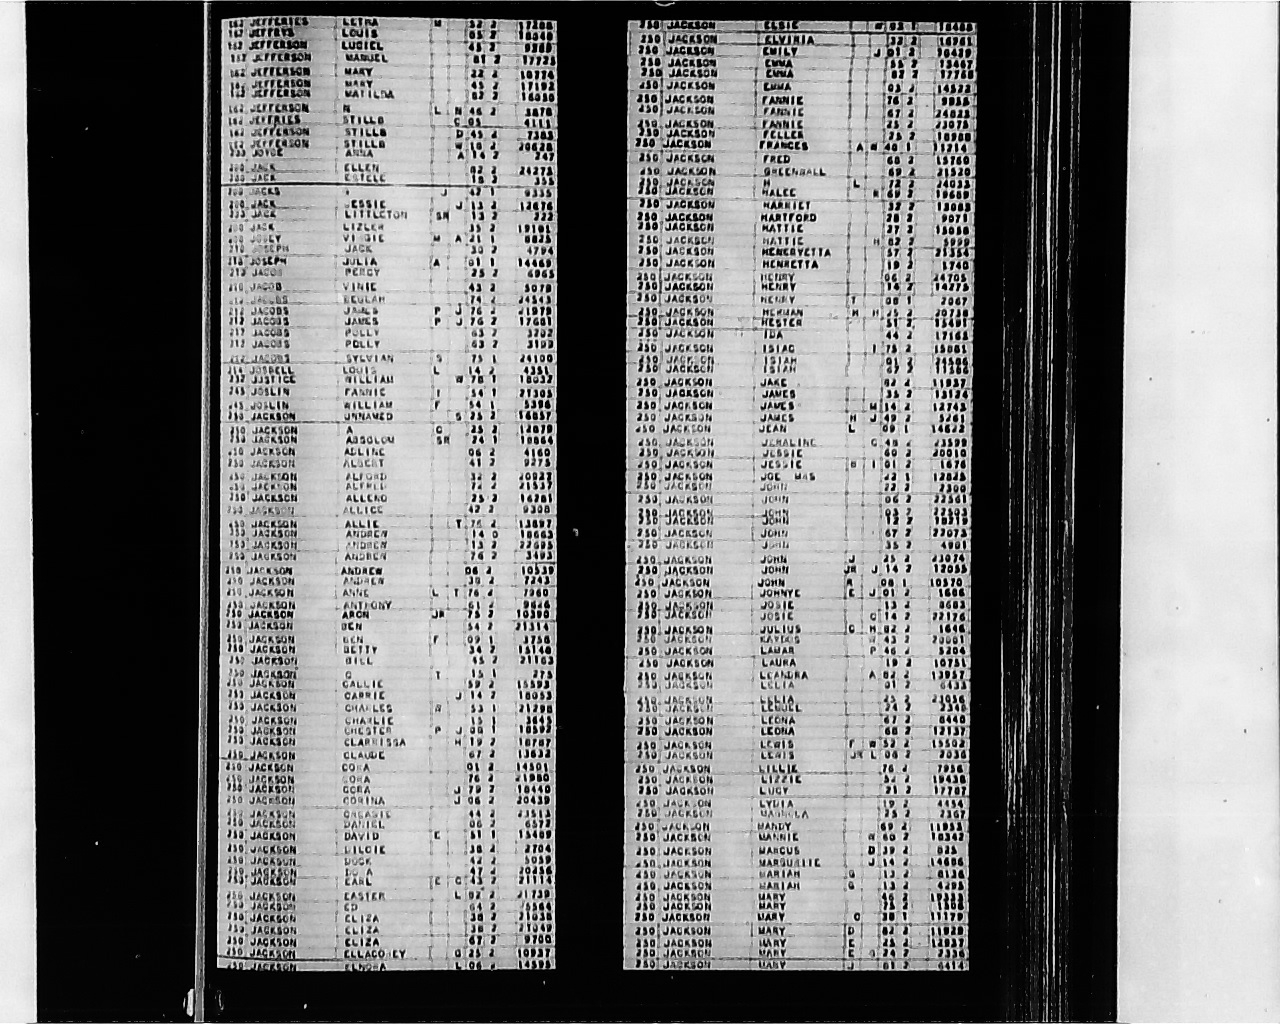 162 JEFFERIES LETHA M 52 2 17288
162 JEFFRYS LOUIS 05 2
162 JEFFERSON LUCIEL 45 2 9289
162 JEFFERSON MANUEL 61 2 17725
162 JEFFERSON MARY 22 2 10774
162 JEFFERSON MARY 45 2 17192
162 JEFFERSON MATILDA 02 2
162 JEFFERSON N L N 46 2 3878
162 JEFFRIES STILLB C 05 4111
162 JEFFERSON STILLB D 45 2 7385
162 JEFFERSON STILLB W 10 2 20628
JOYCE ANNA A 14 2 247
200 JACK ELLEN 02 2 24275
200 JACK ESTELE 15 2 355
200 JACKS J 67 1 9335
200 JACK JESSIE J 13 2 12676
JACK LITTLETON SR 13 2 222
200 JACK LIZLER 35 2 19101
JOSEY VIRGIE M A 21 1 8825
210 JOSEPH JACK 30 2 4794
210 JOSEPH JULIA A 01 1 14460
212 JACOB PERCY 25 2 6965
JACOB VINIE 43 2 5078
212 JACOBS BEULAH 74 2 24543
212 JACOBS JAMES P J 76 2 21979
212 JACOBS JAMES P J 76 2 17601
212 JACOBS POLLY 63 2 3202
212 JACOBS POLLY 63 2
212 JACOBS SYLVIAN S 75 1 24100
214 JOSBELL LOUIS L 14 2 4351
232 JUSTICE WILLIAM W 78 1 18032
245 JOSLIN FANNIE I 54 1 21305
245 JOSLIN WILLIAM F 54 1 5396
250 JACKSON UNNAMED S 25 2 16857
250 JACKSON A C 25 2 12879
250 JACKSON ABSOLOM SR 24 1 10864
250 JACKSON ADLINE 06 2 4160
250 JACKSON ALBERT 41 2 9275
250 JACKSON ALFORD 32 2 20037
250 JACKSON ALFRED 72 2 21537
250 JACKSON ALLENO 25 2 16281
250 JACKSON ALLICE 47 2 9308
250 JACKSON ALLIE T 75 2 13897
250 JACKSON ANDREW 14 0 18663
250 JACKSON ANDREW 13 2 22695
250 JACKSON ANDREW 76 2 3493
250 JACKSON ANDREW 06 2 10539
250 JACKSON ANDREW 30 2 7243
250 JACKSON ANNE L T 76 2 7960
250 JACKSON ANTHONY 61 2 9666
250 JACKSON ARON JR 75 2 10390
250 JACKSON BEN 54 2 21314
250 JACKSON BEN F 09 1 3756
250 JACKSON BETTY 34 2 15140
250 JACKSON BILL 45 2 21163
250 JACKSON C T 15 1 275
250 JACKSON CALLIE 59 2 15593
250 JACKSON CARRIE J 14 2 18053
250 JACKSON CHARLES W 53 1 21298
250 JACKSON CHARLIE 15 1 3845
250 JACKSON CHESTER P J 08 1 18592
250 JACKSON CLARRISSA H 19 2 18787
250 JACKSON CLAUDE 67 2 13632
250 JACKSON CORA 01 2 14501
250 JACKSON CORA 76 2 21980
250 JACKSON CORA J 79 2 18440
250 JACKSON CORINA J 06 2 20439
250 JACKSON CREASIE 44 2 23513
250 JACKSON DANIEL 06 2 6572
250 JACKSON DAVID E 51 1 15469
250 JACKSON DILCIE 38 2 2704
250 JACKSON DOCK 42 2 5059
250 JACKSON DORA 47 2 20256
250 JACKSON EARL E C 43 2 21114
250 JACKSON EASTER L 02 2 21739
250 JACKSON ED 64 2 5566
250 JACKSON ELIZA 38 2 21038
250 JACKSON ELIZA 38 2 21049
250 JACKSON ELIZA 67 2 9700
250 JACKSON ELLACO EY G 25 2 10937
250 JACKSON ELNORA L 06 2 14595
250 JACKSON ELSIE W 03 1 18488
250 JACKSON ELVIRIA 32 2 18761
250 JACKSON EMILY J 01 2 20429
250 JACKSON EMMA 55 2 13467
250 JACKSON EMMA 82 2 17768
250 JACKSON EMMA 03 2 14522
250 JACKSON FANNIE 76 2 9955
250 JACKSON FANNIE 67 2 24825
250 JACKSON FANNIE 25 2 23075
250 JACKSON FELLER 25 2 18988
250 JACKSON FRANCES A W 40 1 11214
250 JACKSON FRED 68 2 15760
250 JACKSON GREENBALL 69 2 21520
250 JACKSON H L 72 2 24033
250 JACKSON HALEE R 69 2 19689
250 JACKSON HARRIET 32 2 13083
250 JACKSON HARTFORD 28 2 9071
250 JACKSON HATTIE 27 2 15058
250 JACKSON HATTIE H 82 2 5999
250 JACKSON HENERYETTA 57 2 21354
250 JACKSON HENRETTA 19 2 1740
250 JACKSON HENRY 06 2 24705
250 JACKSON HENRY 14 2 14775
250 JACKSON HENRY T 08 1 2067
250 JACKSON HERMAN H H 25 2 20738
250 JACKSON HESTER 51 2 15491
250 JACKSON IDA 44 2 17165
250 JACKSON ISIAC I 75 2 15081
250 JACKSON ISIAH 01 2 24586
250 JACKSON ISIAH 67 2 11586
250 JACKSON JAKE 82 2 11937
250 JACKSON JAMES 35 2 13124
250 JACKSON JAMES M 14 2 12745
250 JACKSON JAMES H J 49 2 5261
250 JACKSON JEAN L 09 1 14622
250 JACKSON JERALINE C 48 2 23599
250 JACKSON JESSIE 60 2 20010
250 JACKSON JESSIE B I 01 2 1676
250 JACKSON JOE MAS 42 1 12825
250 JACKSON JOHN 22 2 2300
250 JACKSON JOHN 06 2 22561
250 JACKSON JOHN 03 2 22503
250 JACKSON JOHN 12 2 18219
250 JACKSON JOHN 67 2 22073
250 JACKSON JOHN 35 2 4901
250 JACKSON JOHN J 14 2 23074
250 JACKSON JOHN JR J 14 2 12055
250 JACKSON JOHN R 08 1 10570
250 JACKSON JOHNYE E J 01 2 1606
250 JACKSON JOSIE 13 2 8683
250 JACKSON JOSIE C 14 2 22176
250 JACKSON JULIUS C H 82 2 1646
250 JACKSON W 43 2 20081
250 JACKSON LAMAR P 46 2 5204
250 JACKSON LAURA 19 2 10751
250 JACKSON LEANDRA A 82 2 13957
250 JACKSON LELIA 01 2 6433
250 JACKSON LELIA 55 2 23056
250 JACKSON LEMUEL
250 JACKSON LEONA 67 2 8440
250 JACKSON LEONA 68 2 12137
250 JACKSON LEWIS F W 52 2 15502
250 JACKSON LEWIS JR L 06 2 2036
250 JACKSON LILLIE 76 2 7956
250 JACKSON LIZZIE 52 2 19438
250 JACKSON LUCY 21 2 17787
250 JACKSON LYDIA 19 2 4454
250 JACKSON MAGNOLA 25 2 2367
250 JACKSON MANDY 69 2 11953
250 JACKSON MANNIE W 60 2 10342
250 JACKSON MARCUS D 39 2 825
250 JACKSON MARGURITE J 14 2 14686
250 JACKSON MARIAH G 13 2 8136
250 JACKSON MARIAH G 13 2 4295
250 JACKSON MARY 46 2 19335
250 JACKSON MARY 38 2
250 JACKSON MARY C 38 1 11179
250 JACKSON MARY D 82 2 11929
250 JACKSON MARY E 25 2 12937
250 JACKSON MARY E G 24 2 2336
250 JACKSON MARY J 61 2 6414